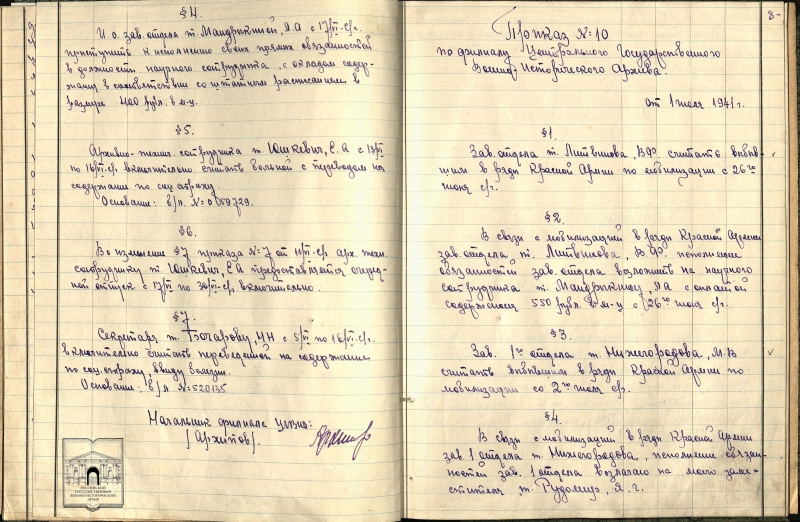 §4.
И. о. зав. отдела т. Мандрыкиной, Л.А. с 17/VI-с/г.
приступить к исполнению своих прямых обязанностей
в должности научного сотрудника, с окладом содер-
жания в соответствии со штатным расписанием в
размере 400 рубл. в м-ц.
§5.
Архивно-технич. сотрудника т. Юшкевич, Е.А. с 13/VI
по 16/VI-с/г. включительно считать больной с переводом на
содержание по соц. страху.
Основание: б/л. №
§6.
Во изменение §7 приказа №7 от 11/VI-с/г. арх. техн.
сотруднику т. Юшкевич, Е.А. предоставляется очеред-
ной отпуск с 17/VI по 30/VI-с/г. включительно.
§7.
Секретаря т. Бочарову, Н.Н. с 5/VI по 16/VI-с/г.
включительно считать переведенной на содержание
по соц. страху, ввиду болезни.
Основание: б/л №520135
Начальник филиала ЦГВИА:
/Архипов/.
РОССИЙСКИЙ
ГОСУДАРСТВЕННЫЙ
ВОЕННО-ИСТОРИЧЕСКИЙ
АРХИВ
8-
Приказ №10
по филиалу Центрального Государственного
Военно-Исторического Архива.
от 1 июля 1941 г.
§1.
Зав. отдела т. Литвинова, В.Ф. считать выбыв-
шим в ряды Красной Армии по мобилизации с 26го
июня с/г.
§2.
В связи с мобилизацией в ряды Красной Армии
зав. отдела т. Литвинова, В.Ф. исполнение
обязанностей зав. отдела возложить на научного
сотрудника т. Мандрыкину, Л.А. с оплатой
содержания 550 рубл. в м-ц с 26го июня с/г.
§3.
Зав. 1го отдела т. Нижегородова, М.В
считать выбывшим в ряды Красной Армии по
мобилизации со 2го июля с/г.
§4.
В связи с мобилизацией в ряды Красной Армии
зав. 1 отдела т. Нижегородова, исполнение обязан-
ностей зав. 1 отдела возлагаю на моего заме-
стителя т. Рудомир, Я. Г.